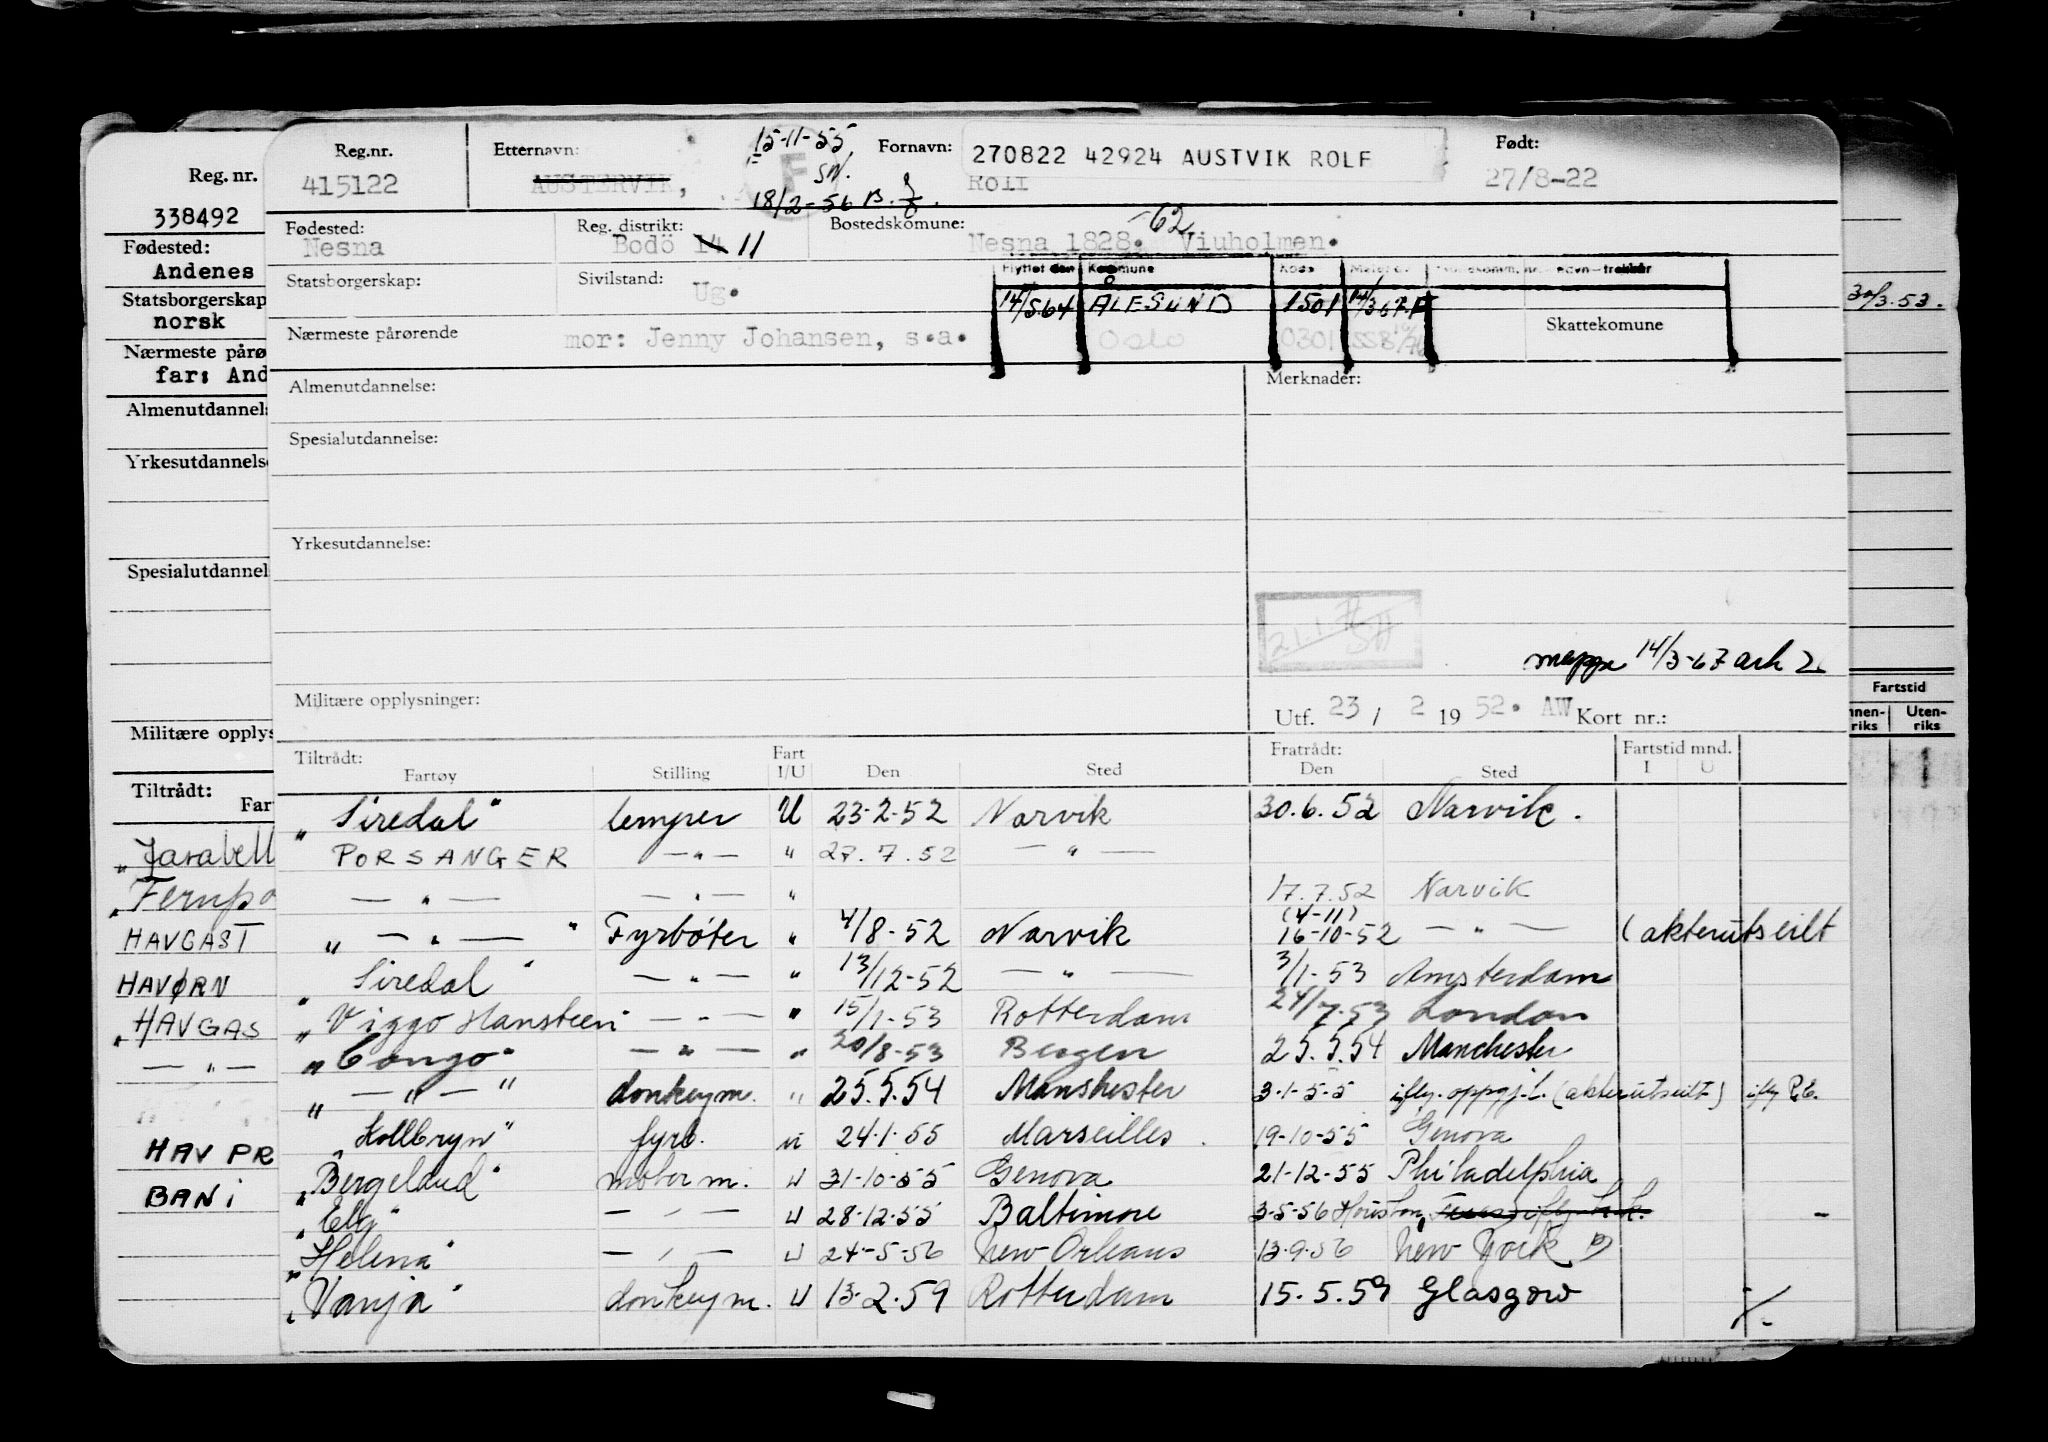 Reg. nr.
338492
Fødested:
Andenes
Statsborgerskap
norsk
Nærmeste pårø
far: And
Almenutdannels
Yrkesutdannelse
Spesialutdannel
Militære opplys
Tiltrådt:
Far
HAVGAST
HAVØRN
"HAVGAS
— " —
HAV PR
BANI
Reg.nr. Etternavn: 15-11-55 Fornavn: 270822 42924 AUSTVIK ROLF Født:
415122 AUSTERVIK, SN. Rolf 27/8-22
18/2-56 B.
Fødested: Reg. distrikt: Bostedskomune: -62
Nesna Bodö 14 11 Nesna 1828. Viuholmen.
Statsborgerskap: Sivilstand: Flyttet den Kommune Kode
Ug.
14/5.64 ÅLESUND 1501 14/3 67.F
Nærmeste pårørende mor: Jenny Johansen, s.a. Oslo 0301 Skattekomune
30/3.53.
Almenutdannelse: Merknader:
Spesialutdannelse:
Yrkesutdannelse:
mappe 14/3-67 ark
Militære opplysninger: Utf. 23 / 2 19 52. AW Kort nr.:
Fartstid
Uten-
riks riks
Tiltrådt: Fart Fratrådt: Fartstid mnd.
Fartøy Stilling I/U Den Sted Den Sted I U
"Siredal" lemper U 23-2-52 Narvik 30.6.52 Narvik.
PORSANGER — " — " 27.7.52 — " —
— " — — " — " 17.7.52 Narvik
" — " — " Fyrbøter " 4/8-52 Narvik (4-11) 16-10-52 — " — (akterutseilt
"Siredal" — " — " 13/12-52 — " — 3/1-53 Amsterdam
"Viggo Hansteen" — " — " 15/1-53 Rotterdam 24/7.53 London
"Congo" — " — " 20/8-53 Bergen 25.5.54 Manchester
" — " — " donkeym. " 25.5.54 Manshester 3-1-55 iflg. oppgj.l. (akterutseilt)
"Kollbryn" fyrb. U 24.1.55 Marseilles. 19-10-55 Genova
"Bergeland" motorm. U 31-10-55 Genova 21-12-55 Philadelphia
"Elg" — " — U 28-12-55 Baltimore 3-5-56 Houston,
"Helena" — " — U 24-5-56 New Orleans 13.9.56 New York
"Vanja" donkeym. U 13.2.59 Rotterdam 15.5.59 Glasgow